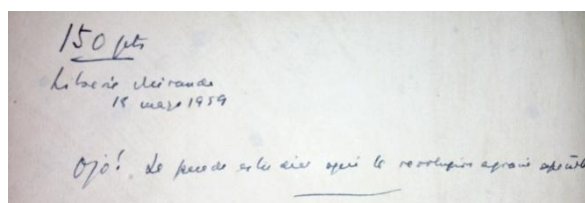 150 pts
Librería Miranda
18 mayo 1959
Ojo! Se puede estudiar aquí la revolución agraria